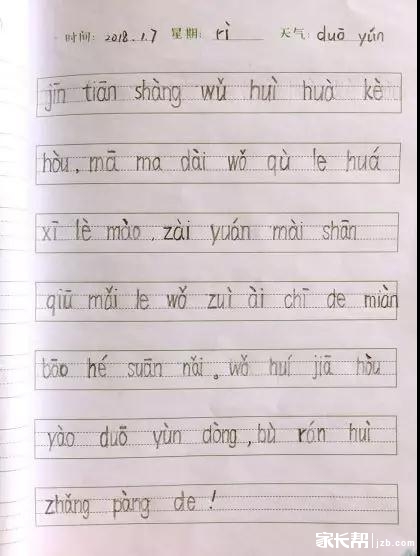 时间: 2018.1.7 星期: rì 天气: duō yún
jīn tiān shàng wǔ huì huà kè
hòu, mā ma dài wǒ qù le huá
xī lè mào, zài yuán mài shān
qiū mǎi le wǒ zuì ài chī de miàn
bāo hé suān nǎi。wǒ huí jiā hòu
yào duō yùn dòng, bù rán huì
zhǎng pàng de!
家长帮 jzb.com